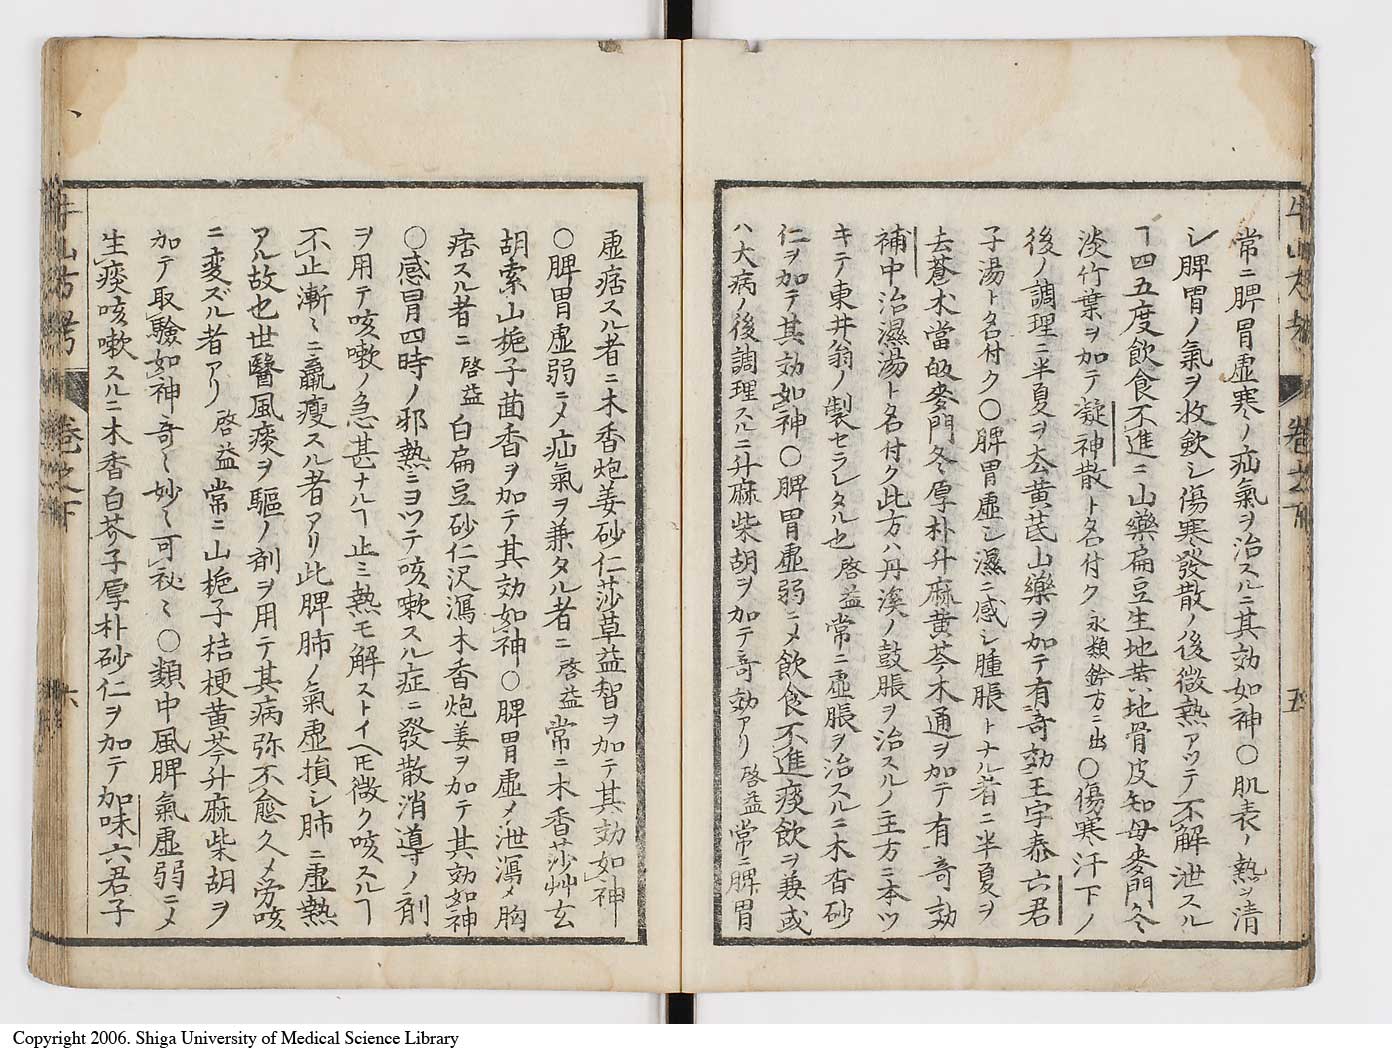 常ニ脾胃虚寒ノ疝氣ヲ治スルニ其効如神〇肌表ノ熱ヲ清
シ脾胃ノ氣ヲ收歛シ傷寒發散ノ後微熱アツテ不解泄スル
ヿ四五度飲食不進ニ山藥扁豆生地黄地骨皮知母麥門冬
淡竹葉ヲ加テ凝神散ト名付ク永類鈐方ニ出〇傷寒汗下ノ
後ノ調理ニ半夏ヲ去黄芪山藥ヲ加テ有奇効王宇泰六君
子湯ト名付ク〇脾胃虚シ濕ニ感シ腫脹トナル者ニ半夏ヲ
去蒼朮當皈麥門冬厚朴升麻黄芩木通ヲ加テ有奇効
補中治濕湯ト名付ク此方ハ丹溪ノ鼓脹ヲ治スルノ主方ニ本ツ
キテ東井翁ノ製セラレタル也啓益常ニ虚脹ヲ治スルニ木香砂
仁ヲ加テ其効如神〇脾胃虚弱ニメ飲食不進痰飲ヲ兼或
ハ大病ノ後調理スルニ升麻柴胡ヲ加テ奇効アリ啓益常ニ脾胃
牛山方考
卷之下
五
虚痞スル者ニ木香炮姜砂仁莎草益智ヲ加テ其効如神
〇脾胃虚弱ニメ疝氣ヲ兼タル者ニ啓益常ニ木香莎艸玄
胡索山梔子茴香ヲ加テ其効如神〇脾胃虚メ泄瀉メ胸
痞スル者ニ啓益白扁豆砂仁沢瀉木香炮姜ヲ加テ其効如神
〇感冒四時ノ邪熱ニヨツテ咳嗽スル症ニ發散消導ノ剤
ヲ用テ咳嗽ノ急甚ナルヿ止ミ熱モ解ストイヘモ微ク咳スルヿ
不止漸〻ニ羸瘦スル者アリ此脾肺ノ氣虚損シ肺ニ虚熱
アル故也世醫風痰ヲ驅ノ剤ヲ用テ其病弥不愈久メ労咳
ニ変ズル者アリ啓益常ニ山梔子桔梗黄芩升麻柴胡ヲ
加テ取驗如神奇〻妙〻可秘〻〇類中風脾氣虚弱ニメ
生痰咳嗽スルニ木香白芥子厚朴砂仁ヲ加テ加味六君子
牛山方考
卷之下
六
Copyright 2006. Shiga University of Medical Science Library